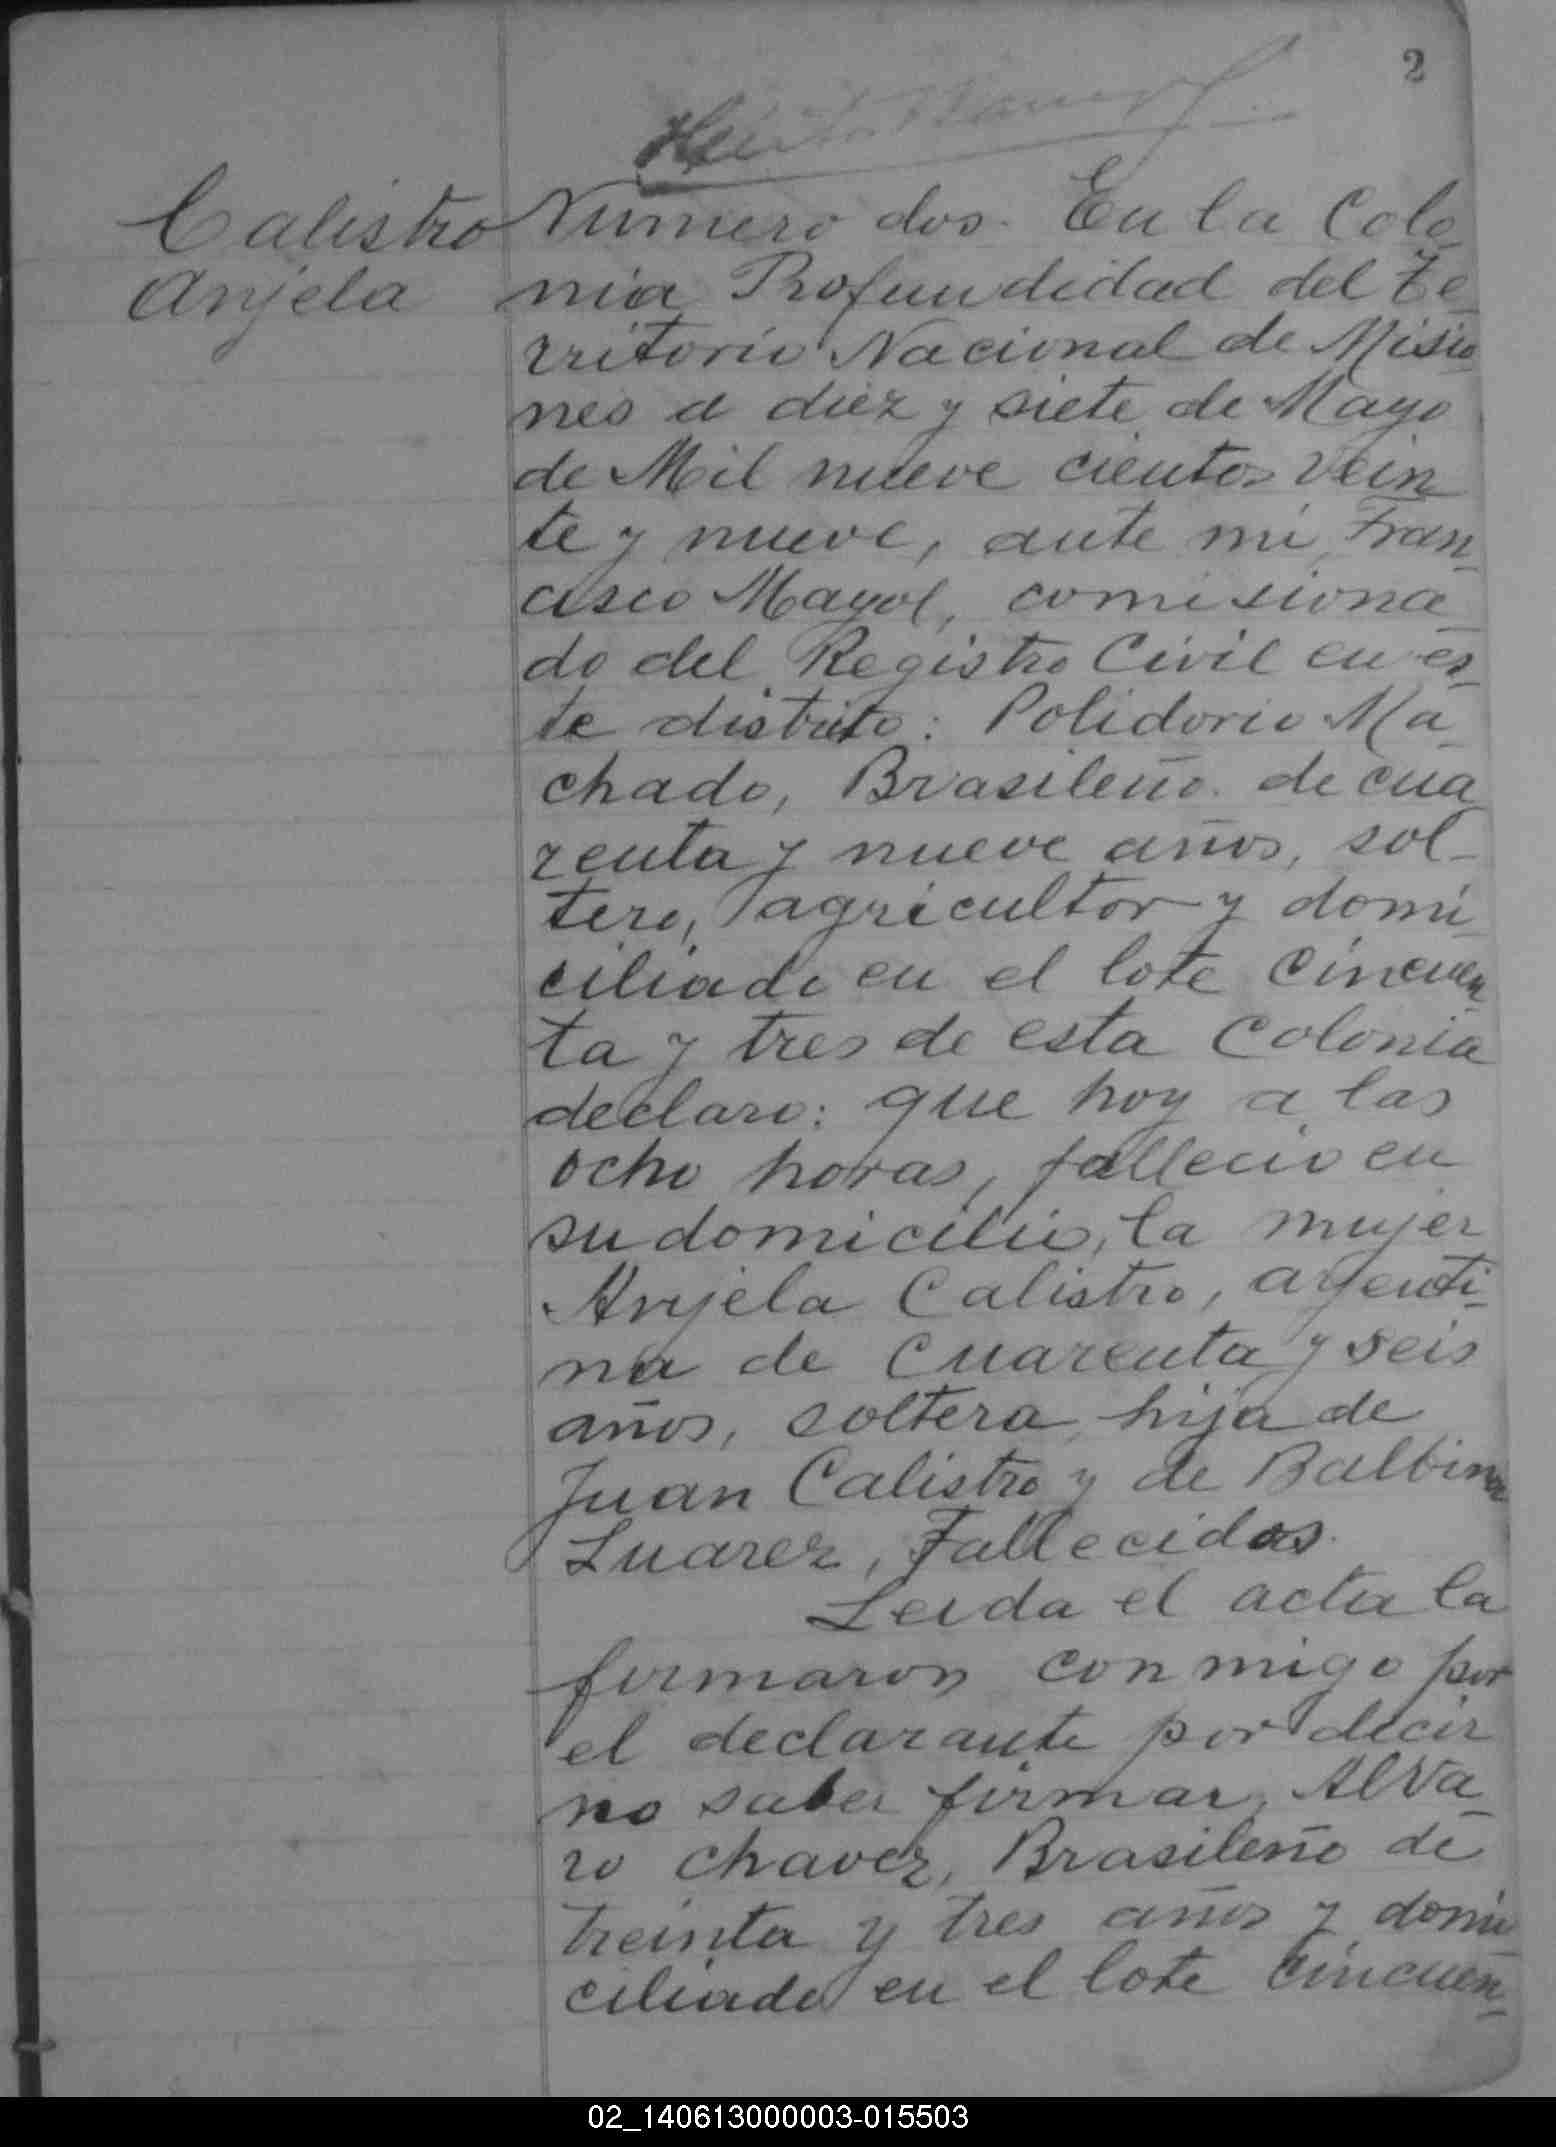 2
Calistro
Anjela
Numero dos. En la Colo
nia Profundidad del Te
rritorio Nacional de Misio
nes a diez y siete de Mayo
de Mil nueve cientos vein
te y nueve, ante mi, Fran
cisco Mayol, comisiona
do del Registro Civil en es
te distrito: Polidorio Ma
chado, Brasileño de cua
renta y nueve años, sol-
tero, agricultor y domi
ciliado en el lote cincuen
ta y tres de esta Colonia
declaro: que hoy a las
ocho horas, fallecio en
su domicilio, la mujer
Anjela Calistro, argenti-
na de cuarenta y seis
años, soltera, hija de
Juan Calistro y de Balbina
Luarez, Fallecidos.
Leida el acta la
firmaron conmigo por
el declarante por decir
no saber firmar, Alva
ro Chavez, Brasileño de
treinta y tres años y domi
ciliado en el lote cincuen-
02_140613000003-015503